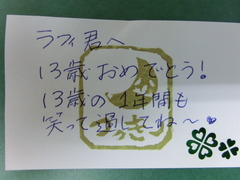 ラフィ君へ
13歳おめでとう!
13歳の1年間も
笑って過してね〜♥